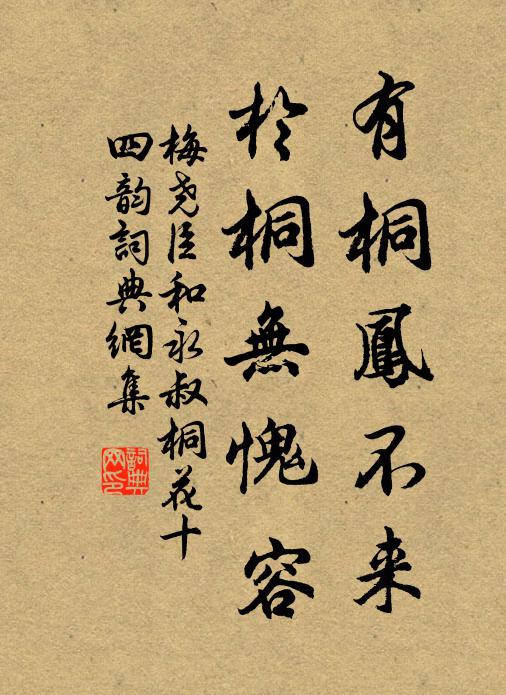 有桐鳳不来
於桐無愧容
梅尧臣和永叔桐花十
四韵詞典網集
詞典
网印